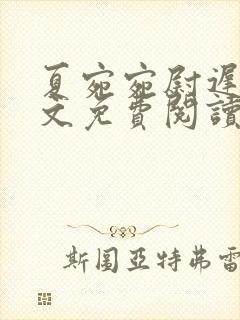 夏宛宛尉遲
文免費閱讀
斯圖亞特弗雷